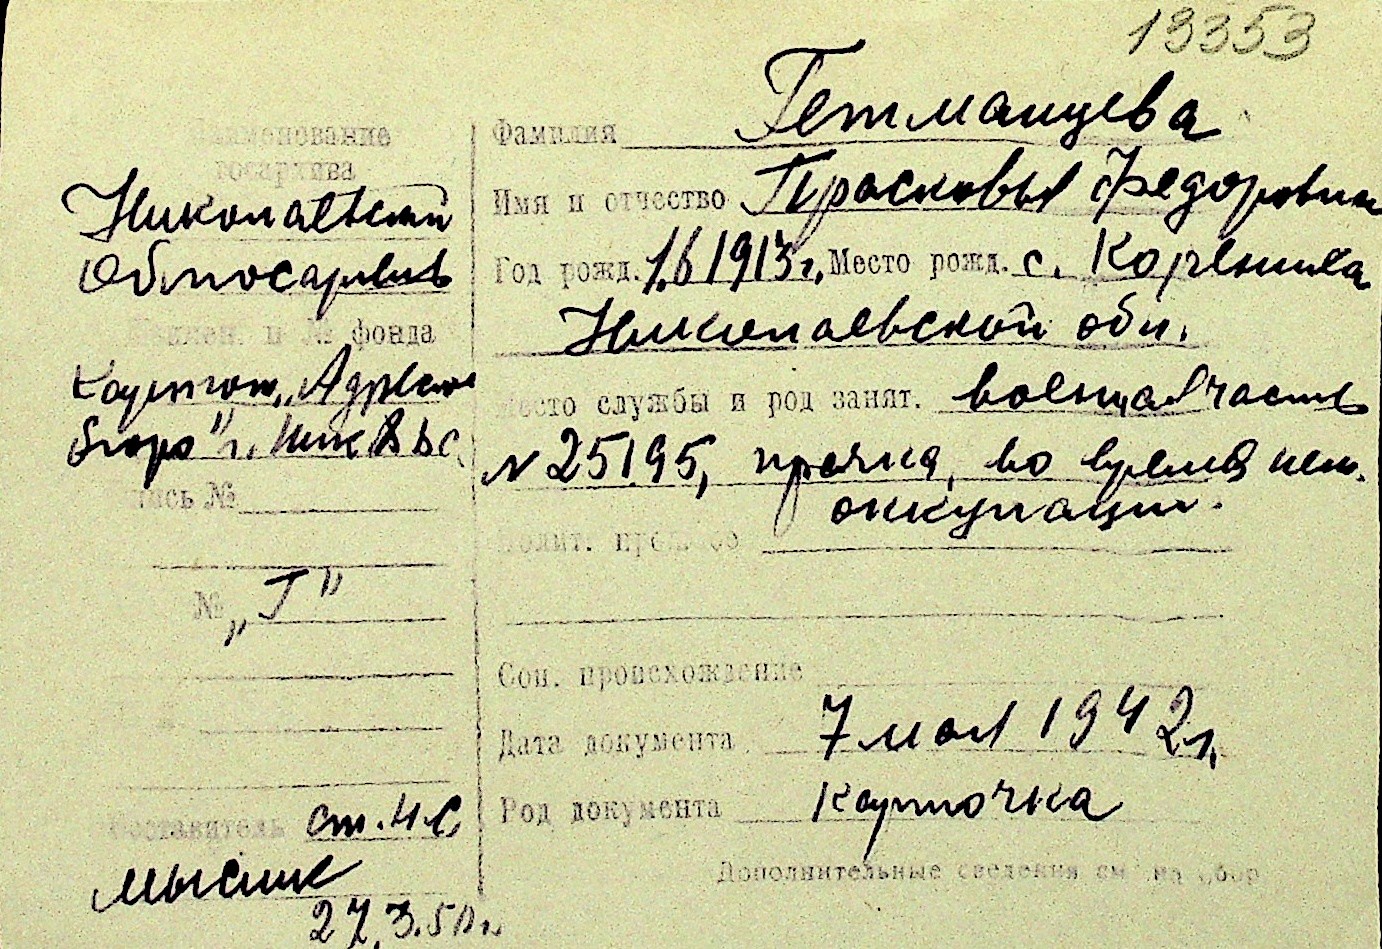 13353
Наименование
госархива
Николаевский
Облгосархив
Наимен. и № фонда
Картот. „Адресное
бюро" г. Ник
опись №
№ „Г"
Составитель ст. н. с
Мысик
27.3.50 г.
Фамилия Гетманцева
Имя и отчество Прасковья Федоровн
Год рожд. 1.6 1913 г. Место рожд. с. Корениха
Николаевской обл.
Место службы и род занят. военная часть
N 25195, прачка, во время нем.
оккупации.
Полит. прошлое
Соц. происхождение
Дата документа 7 мая 1942 г.
Род документа карточка
Дополнительные сведения см. на обор